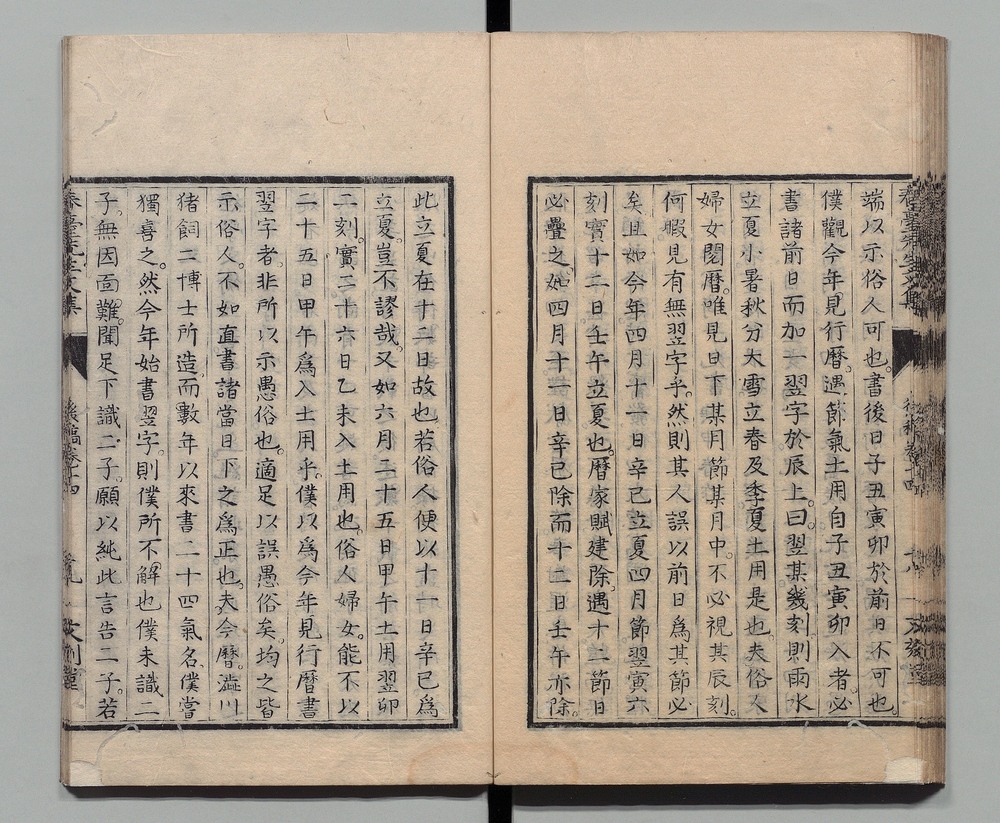 端以示俗人可也。書後日子丑寅卯於前日不可也。
僕觀今年見行曆。遇節氣土用自子丑寅卯入者。必
書諸前日而加一翌字於辰上。曰翌某幾刻。則雨水
立夏小暑秋分大雪立春及季夏土用是也。夫俗人
婦女閱曆。唯見日下某月節某月中。不必視其辰刻。
何暇見有無翌字乎。然則其人誤以前日爲其節必
矣。且如今年四月十一日辛巳立夏四月節翌寅六
刻。實十二日壬午立夏也。曆家賦建除。遇十二節日
必疊之。如四月十一日辛巳除而十二日壬午亦除。
此立夏在十二日故也。若俗人便以十一日辛巳爲
立夏。豈不謬哉。又如六月二十五日甲午土用翌卯
二刻。實二十六日乙未入土用也。俗人婦女。能不以
二十五日甲午爲入土用乎。僕以爲今年見行曆書
翌字者。非所以示愚俗也。適足以誤愚俗矣。均之皆
示俗人。不如直書諸當日下之爲正也。夫今曆。澁川
猪飼二博士所造。而數年以來書二十四氣名。僕嘗
獨喜之。然今年始書翌字。則僕所不解也。僕未識二
子。無因面難。聞足下識二子。願以純此言告二子。若
春臺先生文集
後稿卷十四